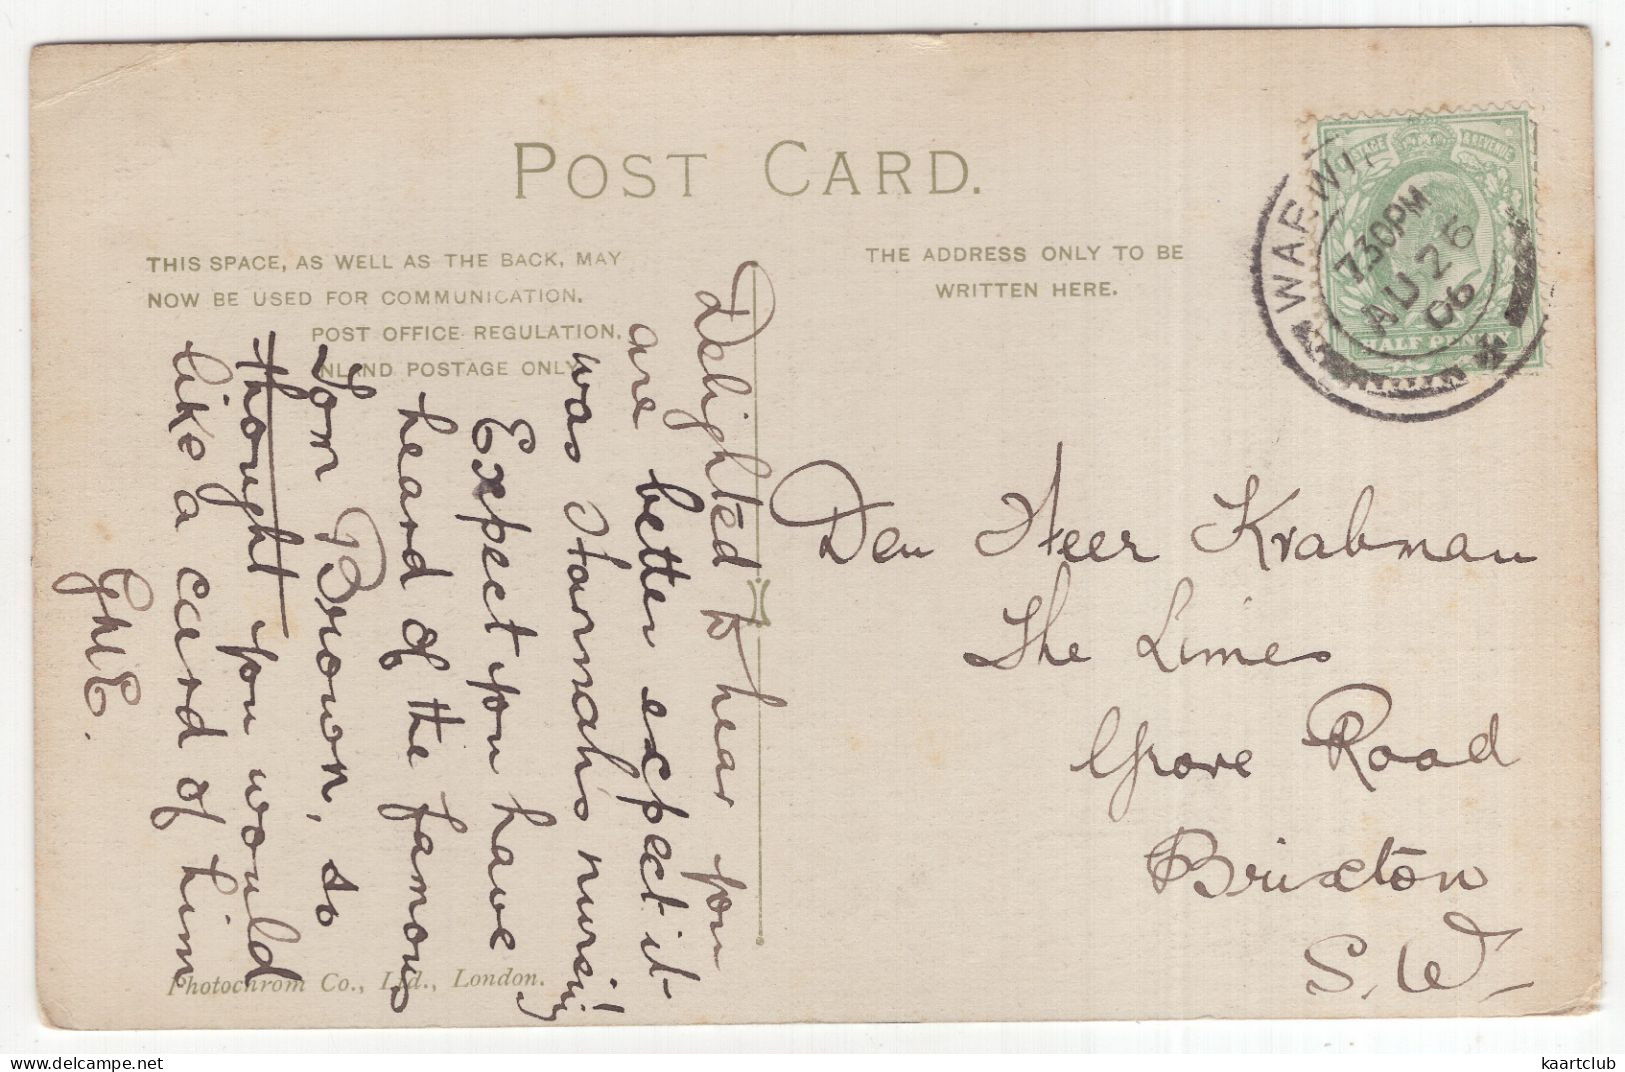 POST CARD.
THIS SPACE, AS WELL AS THE BACK, MAY
NOW BE USED FOR COMMUNICATION.
POST OFFICE REGULATION.
INLAND POSTAGE ONLY
THE ADDRESS ONLY TO BE
WRITTEN HERE.
Delighted to hear you
are better expect it
was Hannah's nursing!
Expect you have
heard of the famous
Tom Brown, so
thought you would
like a card of him
Den Heer Krabman
The Limes
Grove Road
Brixton
S.W.
POSTAGE & REVENUE
HALF PENNY
WARWI
7 30PM
AU 26
06
Photochrom Co., Ltd., London.
kaartclub